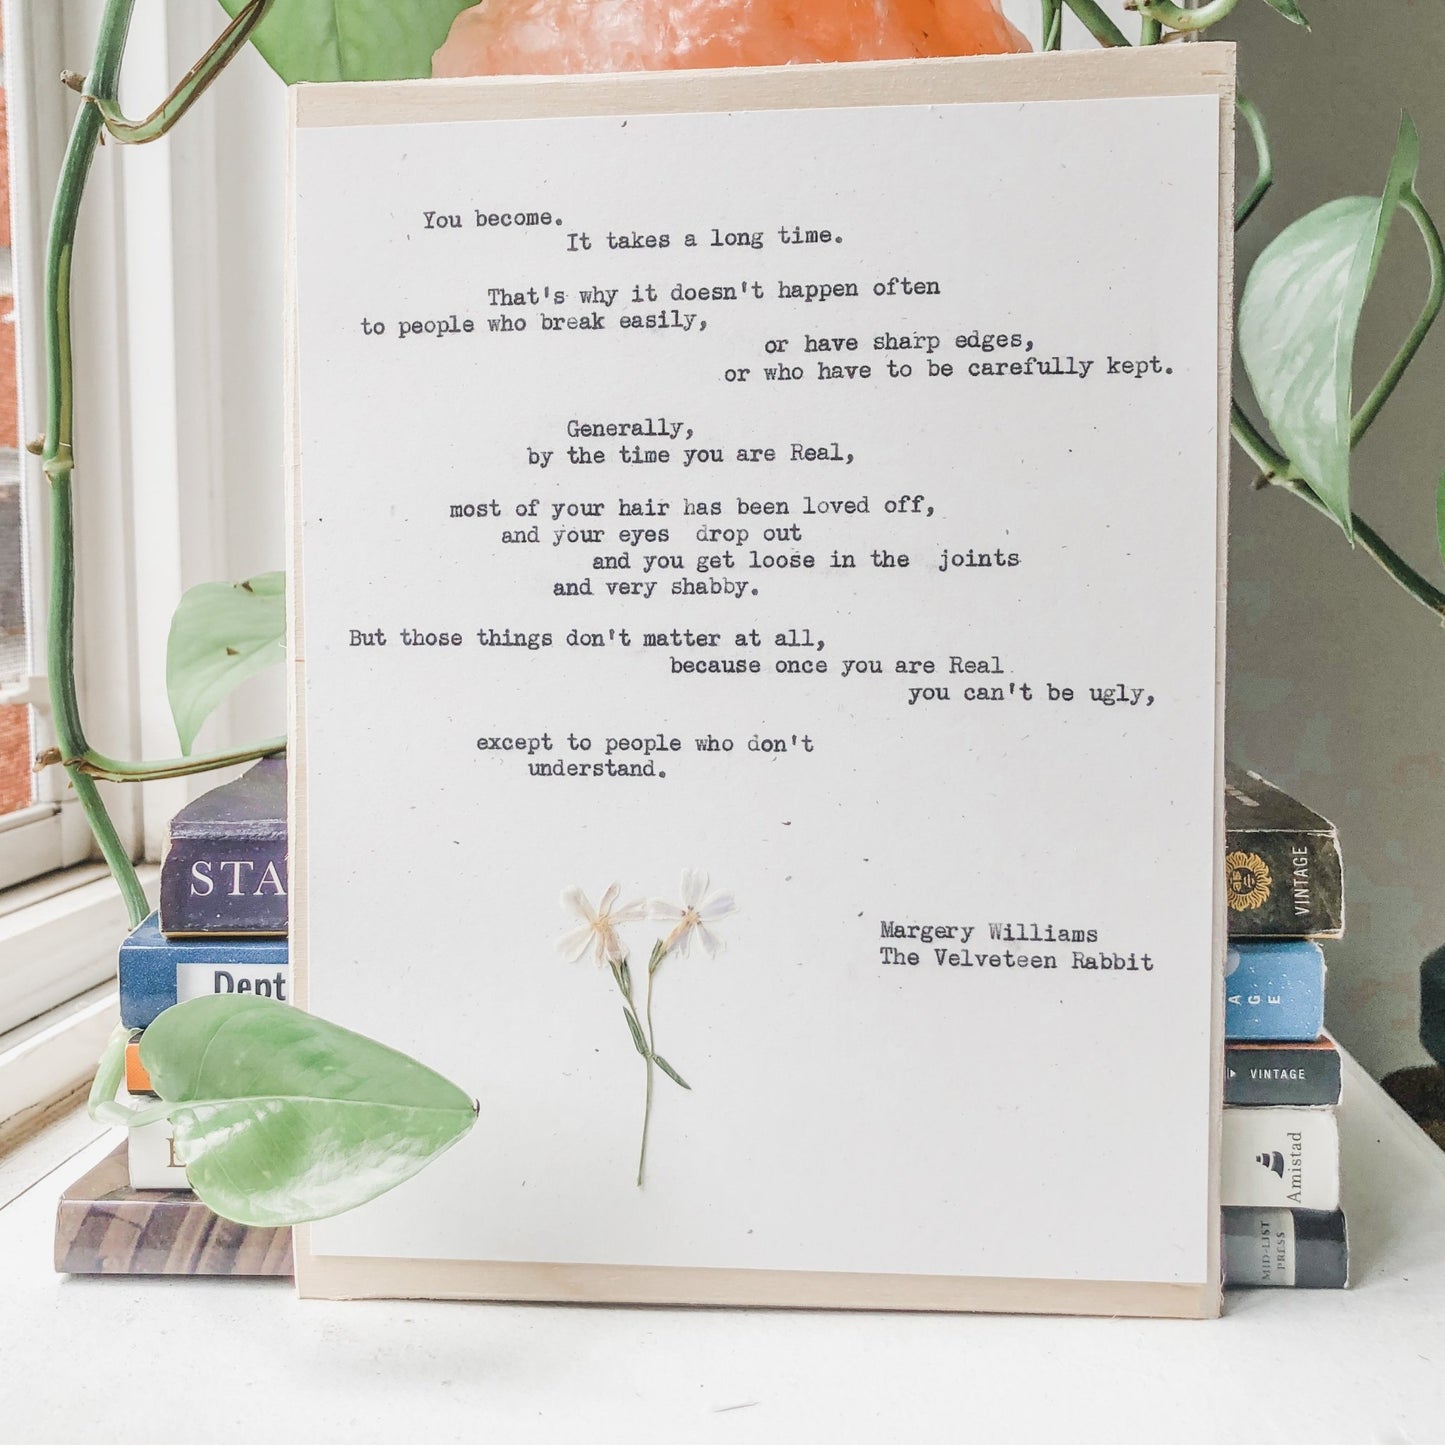 You become.
It takes a long time.
That's why it doesn't happen often
to people who break easily,
or have sharp edges,
or who have to be carefully kept.
Generally,
by the time you are Real,
most of your hair has been loved off,
and your eyes drop out
and you get loose in the joints
and very shabby.
But those things don't matter at all,
because once you are Real
you can't be ugly,
except to people who don't
understand.
Margery Williams
The Velveteen Rabbit
STA
Dent
VINTAGE
AGE
VINTAGE
Amistad
MID-LIST
PRESS